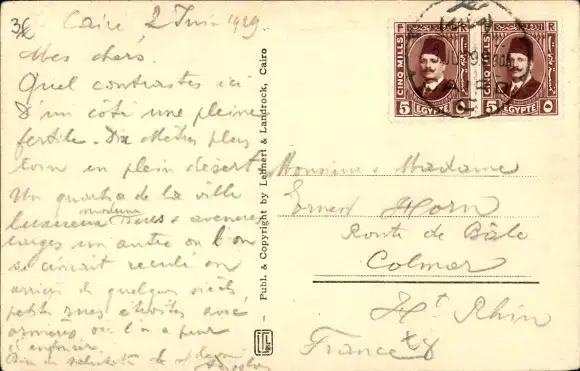 36
Caire, 2 Juin 1929
Mes chers,
Quel contrastes ici
D'un côté une pleine
fertile. Dix Mètres plus
loin en plein désert
Un quartier de la ville
moderne
luxueux & avenues
larges un autre où l'on
se croirait reculé en
arrière de quelques siècles
petites rues étroites avec
où l'on a peur
Monsieur & Madame
Ernest Horn
Route de Bâle
Colmar
Ht Rhin
France
Publ. & Copyright by Lehnert & Landrock, Cairo
F R
CINQ MILLS
5 EGYPTE ٥
F R
CINQ MILLS
5 EGYPTE ٥